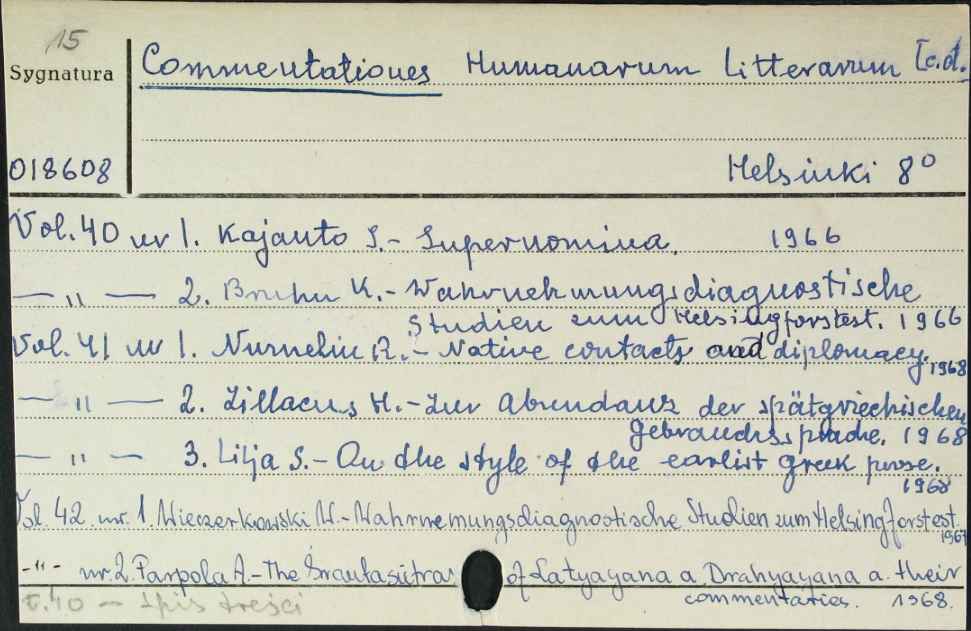 15
Sygnatura
Commentationes Humanarum Litterarum [c.d.
018608
Helsinki 8°
Vol. 40 nr 1. Kajanto I. - Supernomina. 1966
— " — 2. Bruhn K. - Wahrnehmungsdiagnostische
Studien zum Helsingforstest. 1966
Vol. 41 nr 1. Numelin R. - Native contacts and diplomacy.
1968
— " — 2. Zilliacus H. - Zur Abundanz der spätgriechischen
Gebrauchssprache. 1968
— " — 3. Lilja S. - On the style of the earlist greek prose.
1968
Vol 42. nr. 1. Wieczerkowski W. - Wahrnemungsdiagnostische Studien zum Helsingforstest.
1967
-"- nr. 2. Parpola A. - The Śrautasūtras of Latyayana a. Drahyayana a. their
commentaries. 1968.
t. 40 — spis treści